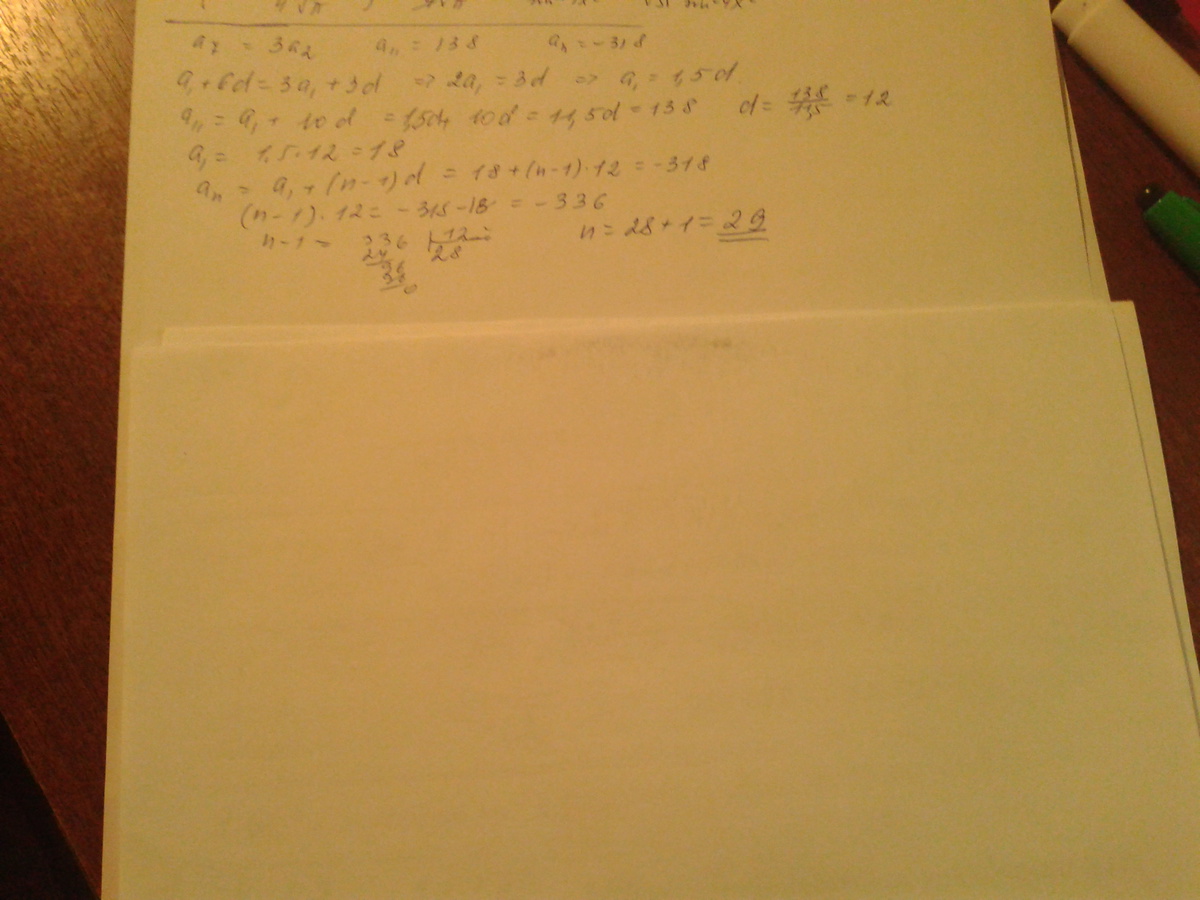 a₇ = 3a₂ a₁₁ = 138 aₙ = -318
a₁+6d = 3a₁+3d => 2a₁ = 3d => a₁ = 1,5d.
a₁₁ = a₁ + 10d = 1,5d+ 10d = 11,5d = 138 d = 138/11,5 = 12
a₁ = 1.5·12 = 18
aₙ = a₁ + (n-1)d = 18+(n-1)·12 = -318
(n-1)·12 = -318-18 = -336
n-1 = 336 12 n = 28+1 = 29
24 28
96
96
0